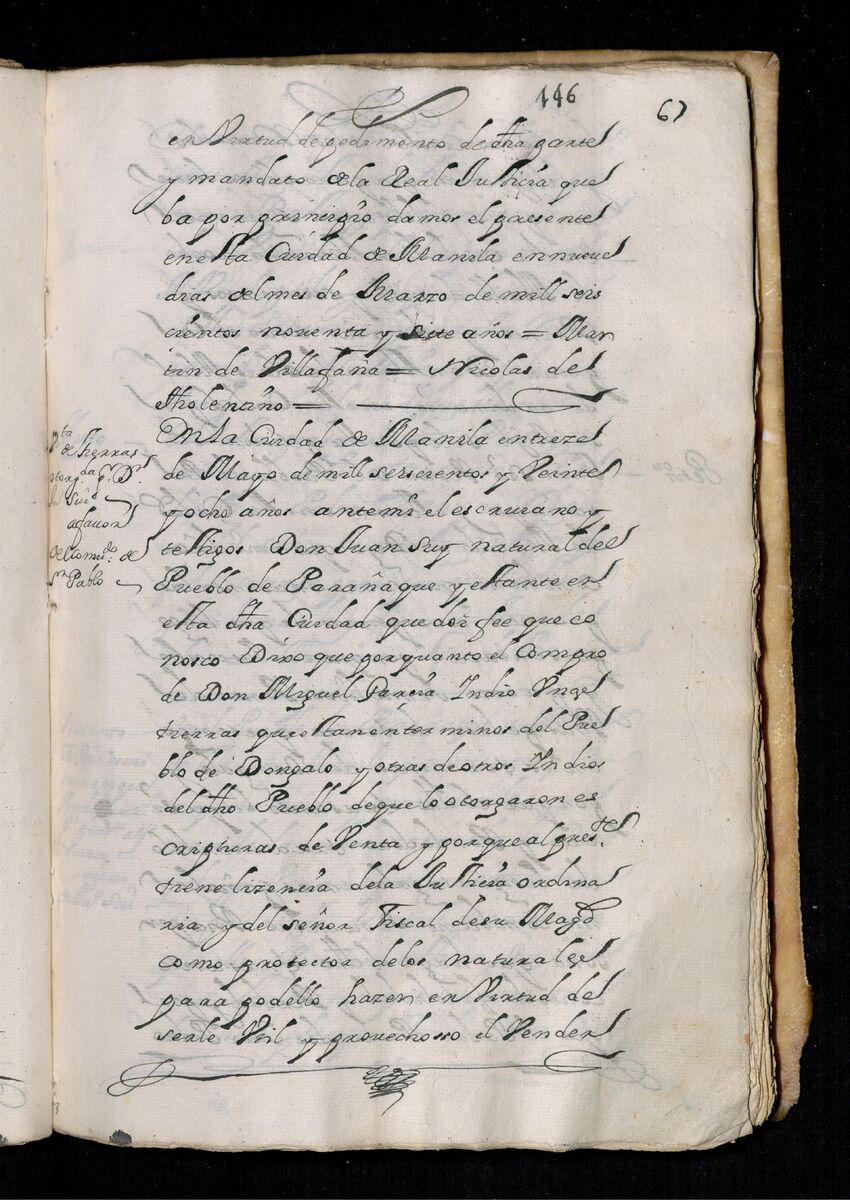 146
67
en Virtud de pedimento de dha parte
y mandato de la Real Justicia que
ba por principio damos el presente
en esta Ciudad de Manila en nueve
dias del mes de Marzo de mill seis
cientos noventa y siete años = Mar
tin de Villafaña = Nicolas de
tholentino =
En la Ciudad de Manila entreze
de Mayo de mill seiscientos y Veinte
y ocho años ante mi el escrivano y
testigos Don Juan Suy natural del
Pueblo de Parañaque y estante en
esta dha Ciudad que doi fee que co
nosco Dixo que por quanto el compro
de Don Miguel Garcia Indio Unas
tierras que estan en terminos del Pue
blo de Dongalo y otras de otros Indios
del dho Pueblo de que lo otorgaron es
cripturas de Venta y porque al pres.te
tiene lizencia de la Justicia ordina
ria y del señor Fiscal de su Magd
como protector de los naturales
para podello hazer en Virtud de
serle Vtil y provechosso el Vender
V.ta
de tierras
otorg.da p.r D.n
Ju Suy
a favor
del Comu.do de
S.n Pablo